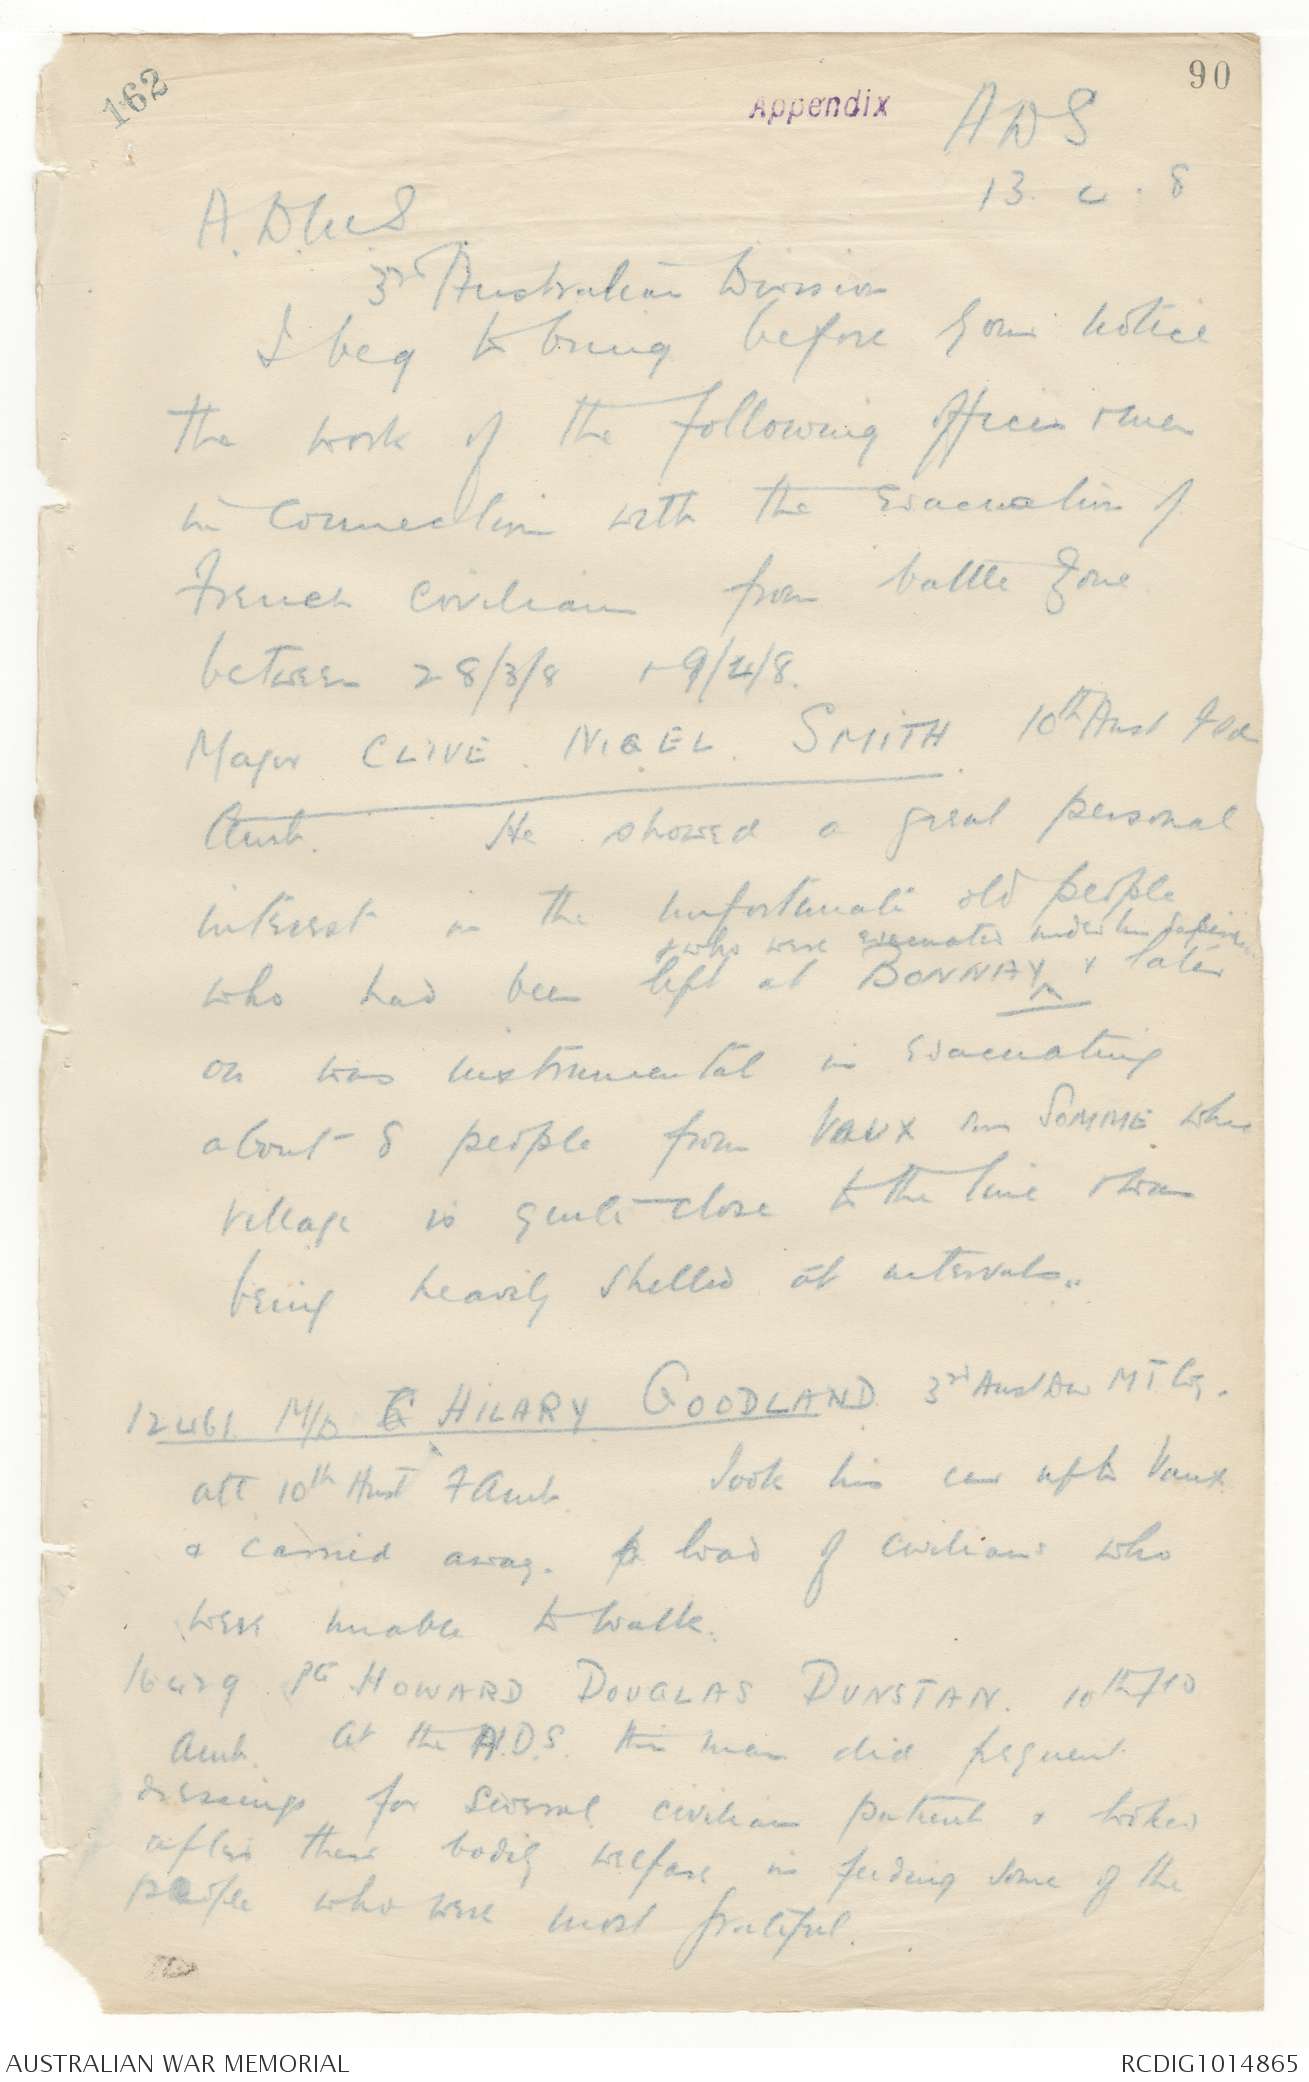 162
90
Appendix
ADS
13. 4. 8
A.D.M.S
3rd Australian Division
I beg to bring before your notice
the work of the following officers & men
in connection with the evacuation of
French civilians from battle zone
between 28/3/8 & 9/4/8.
Major CLIVE. NIGEL. SMITH. 10th Aust Fld
Amb. He showed a great personal
interest in the unfortunate old people
& who were evacuated under his
who had been left at BONNAY ^ & later
on was instrumental in evacuating
about 8 people from VAUX sur SOMME. where
village is quite close to the line & was
being heavily shelled at intervals..
12461. M/D HILARY GOODLAND 3rd Aust Div MT Coy.
att 10th Aust F Amb. Took his car up to Vaux
& carried away. a load of civilians who
were unable to walk.
16429 Pte HOWARD DOUGLAS DUNSTAN. 10th Fld
Amb. At the A.D.S. this man did frequent
dressings for several civilian patients & looked
after their bodily welfare in feeding some of the
people who were most grateful.
AUSTRALIAN WAR MEMORIAL
RCDIG1014865